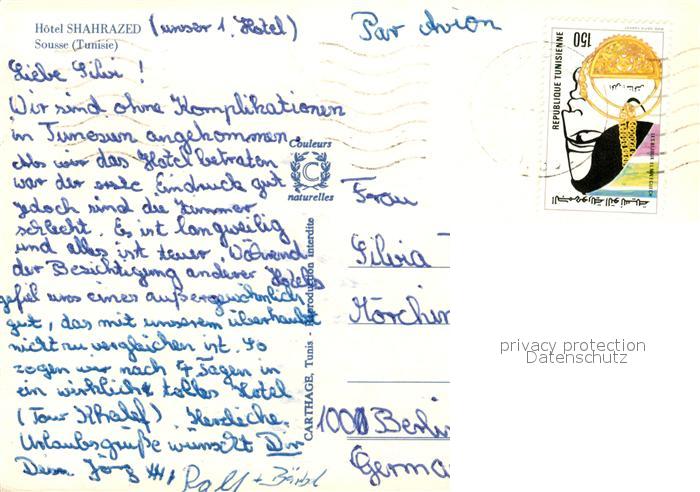 Hôtel SHAHRAZED (unser 1. Hotel)
Sousse (Tunisie)
Par Avion
Liebe Silvi !
Wir sind ohne Komplikationen
in Tunesien angekommen.
Als wir das Hotel betraten
war der erste Eindruck gut
jedoch sind die Zimmer
schlecht. Es ist langweilig
und alles ist teuer. Während
der Besichtigung anderer Hotels
gefiel uns eines außergewöhnlich
gut, das mit unserem überhaupt
nicht zu vergleichen ist. So
zogen wir nach 4 Tagen in
ein wirklich tolles Hotel
(Tour Khalef). Herzliche
Urlaubsgrüße wünscht Dir
Dein Jörg !!!!
Ralf + Bärbel
Couleurs
C
naturelles
CARTHAGE, Tunis - Reproduction interdite
Frau
Silvia
1000 Berlin
Germa
REPUBLIQUE TUNISIENNE
150
privacy protection
Datenschutz